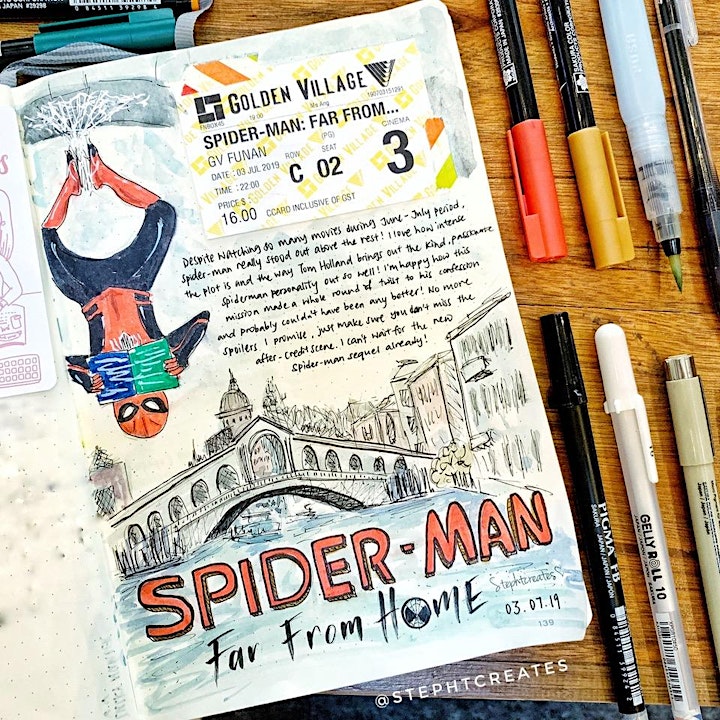 JAPAN 0 84511 39286 6
GOLDEN VILLAGE
FNBOX45 19:00 Ms Ang 190703151291
SPIDER-MAN: FAR FROM...
GV FUNAN (PG) CINEMA
DATE : 03 JUL 2019 ROW SEAT
TIME : 22:00 C 02 3
PRICE $ :
16.00 CCARD INCLUSIVE OF GST
Despite watching so many movies during June-July period,
spider-man really stood out above the rest! I love how intense
the plot is and the way Tom Holland brings out the kind, passionate
spiderman personality out so well! I'm happy how this
mission made a whole round of twist to his confession
and probably couldn't have been any better! No more
spoilers I promise, just make sure you don't miss the
after-credit scene. I can't wait for the new
spider-man sequel already!
SPIDER-MAN
Far From HOME
Stephtcreates
03.07.19
139
@STEPHTCREATES
PIGMA FB
SAKURA
GELLY ROLL 10